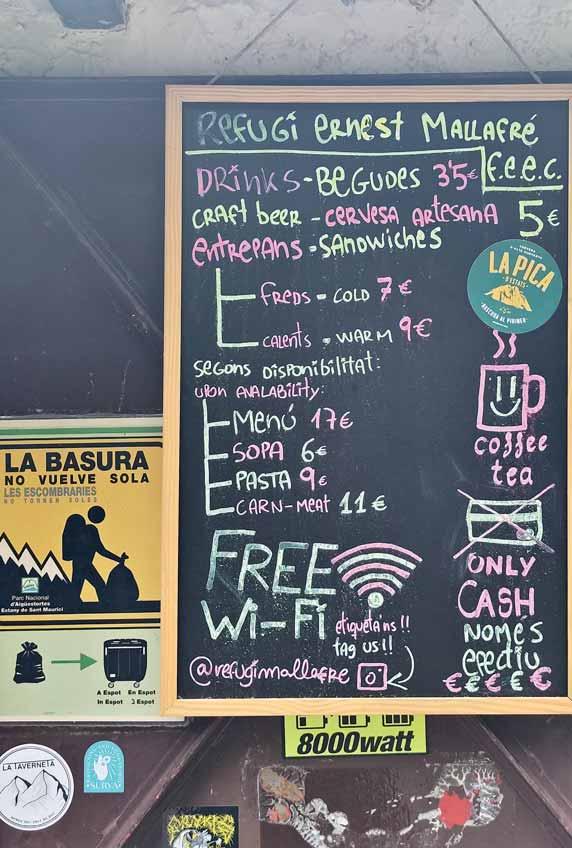 Refugi ernest Mallafré
f.e.e.c.
DRinks - BeGudes 3'5€
craft beer - cervesa artesana 5€
entrepans = sandwiches
freds = cold 7€
calents = warm 9€
segons disponibilitat:
upon avalability:
Menú 17€
SOPA 6€
PASTA 9€
CARN-MeAt 11€
FREE
Wi-Fi
etiqueta'ns !!
tag us !!
@refugimallafre
LA PICA
D'ESTATS
coffee
tea
ONLY
CASH
NOMÉS
efectiu
€ € € € €
LA BASURA
NO VUELVE SOLA
LES ESCOMBRARIES
NO TORNEN SOLES
Parc Nacional
d'Aigüestortes
Estany de Sant Maurici
A Espot En Espot
In Espot
8000watt
LA TAVERNETA
SURVA